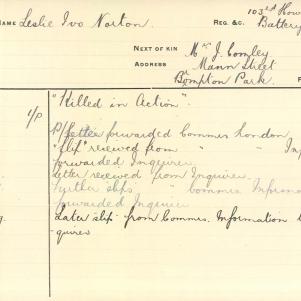 NAME Leslie Ivo Norton. REG. &c. 103rd How
Battery
NEXT OF KIN Mr J. Comley
ADDRESS Mann Street
Brompton Park.
"Killed in Action".
1/P
P/ letter forwarded Commis London
"slip" received from " " In
forwarded Inquirer
letter received from Inquirer.
Further slip " Commis. Informa
forwarded Inquirer
Later slip from Commis. Information
quirer